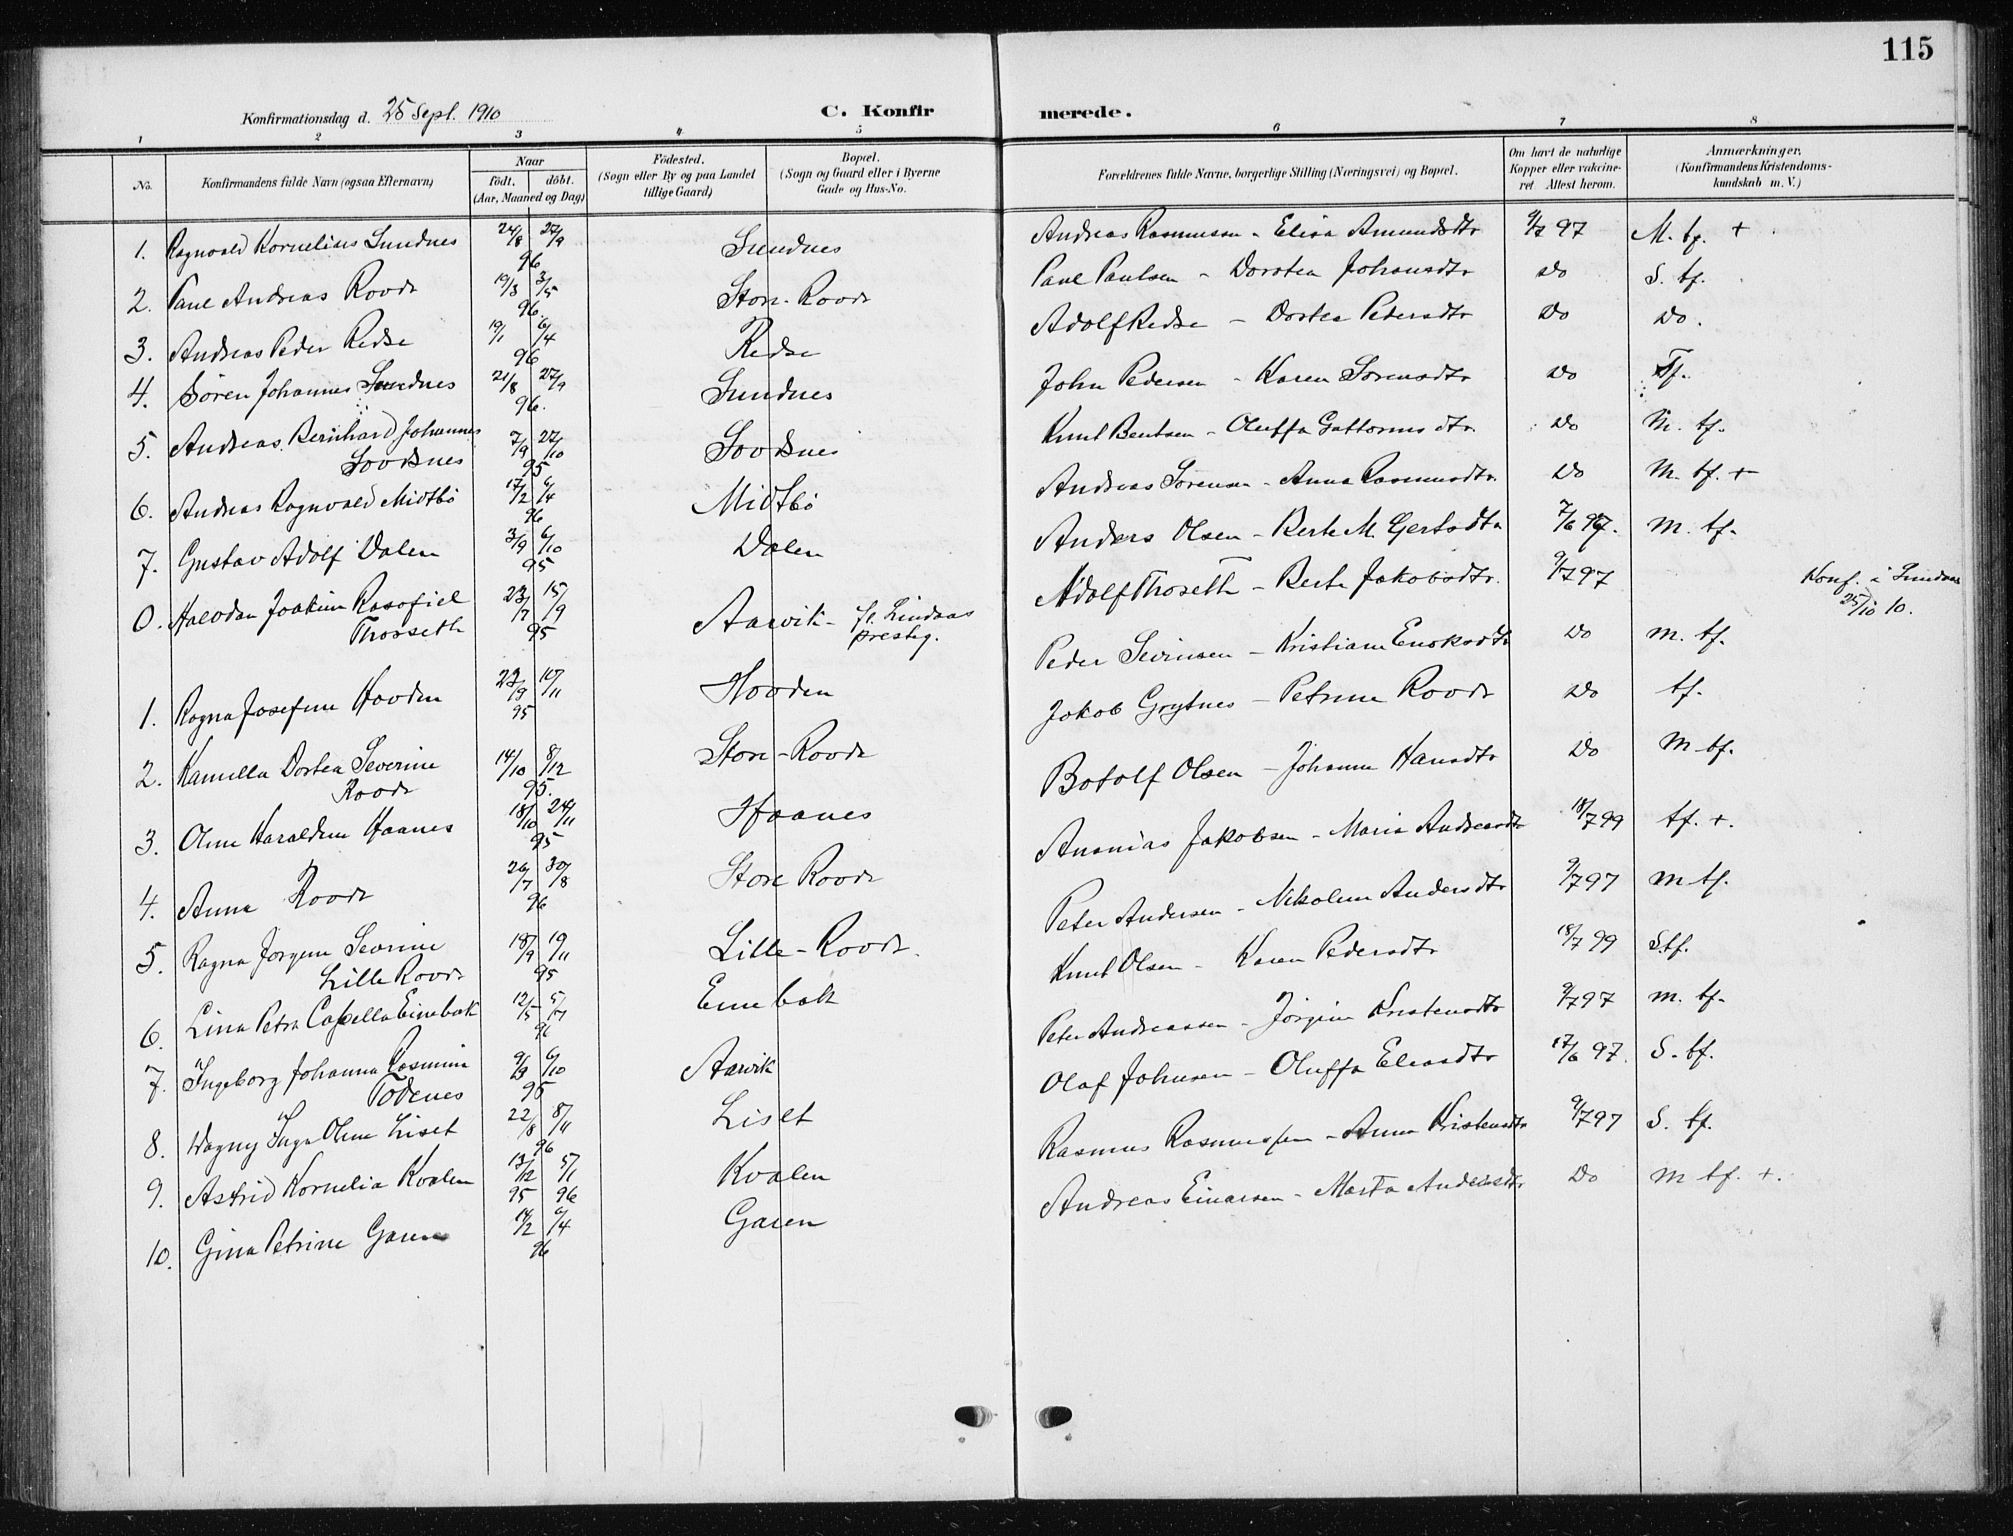 115
Konfirmationsdag d. 25 Sept. 1910
C. Konfirmerede.
1 2 3 4 5 6 7 8
No.
Konfirmandens fulde Navn (ogsaa Efternavn)
Naar
født. døbt.
(Aar, Maaned og Dag)
Födested.
(Sogn eller By og paa Landet
tillige Gaard)
Bopæl.
(Sogn og Gaard eller i Byerne
Gade og Hus-No.
Forældrenes fulde Navne, borgerlige Stilling (Næringsvei) og Bopæl.
Om havt de naturlige
Kopper eller vakcine-
ret. Attest herom.
Anmærkninger,
(Konfirmandens Kristendoms-
kundskab m. V.)
1. Ragnvald Kornelius Sundnes 24/8 27/9 96 Sundnes Andreas Rasmussen - Elisa Amundsdtr 9/7 97 M. tf. +
2. Paul Andreas Rovde 19/3 3/5 96. Store-Rovde Paul Paulsen - Dorthea Johansdtr Do S. tf.
3. Andreas Peder Redse 19/1 6/4 96 Redse Adolf Redse - Dortea Pedersdtr Do Do.
4. Søren Johannes Sundnes 21/8 27/9 96. Sundnes John Pedersen - Karen Sørensdtr Do Tf.
5. Andreas Bernhard Johannes 7/9 27/10 95 Sovdsnes Knut Bentsen - Oluffa Guttormsdtr. Do M. tf.
Sovdsnes
6. Andreas Ragnvald Midtbø 17/2 6/4 96 Midtbø Andreas Sørensen - Anna Rasmusdtr. Do M. tf. +
7. Gustav Adolf Dalen 3/9 6/10 95 Dalen Anders Olsen - Berte M. Gertsdtr 7/6 97. M. tf.
0. Halvdan Joakim Rasofiel 23/7 15/9 95 Aarvik - f. Lindaas Adolf Thoseth - Berte Jakobsdtr. 9/7 97 Konf. i
Thorseth prestg. 25/10 10.
1. Ragna Josefine Hovden 22/9 10/11 95 Hovden Peder Sevrinsen - Kristiane Enoksdtr Do M. tf.
2. Kamilla Dortea Severine 14/10 8/12 95. Store-Rovde Jakob Grytnes - Petrine Rovde Do tf.
Rovde
3. Oline Haraldine Haanes 18/10 24/11 95 Haanes Botolf Olsen - Johanne Hansdtr Do M tf.
4. Anna Rovde 26/7 30/8 96 Store Rovde Ananias Jakobsen - Maria Andreasdtr 18/7 99 tf. +.
5. Ragna Jørgine Sevrine 18/9 19/11 95 Lille-Rovde. Peter Andersen - Nikoline Andersdtr 9/7 97 M tf.
Lille Rovde
6. Lina Petra Capella Einebak 12/5 5/7 96 Einebak Knut Olsen - Karen Pedersdtr 18/7 99 S tf.
7. Ingeborg Johanna Rasmine 9/9 6/10 95 Aarvik Peter Andreassen - Jørgine Kristensdtr 9/7 97 M. tf.
Todenes
8. Dagny Inga Oline Liset 22/8 8/11 96 Liset Olaf Johnsen - Oluffa Eliasdtr 17/6 97. S. tf.
9. Astrid Kornelia Kvalen 13/12 95 5/1 96 Kvalen Rasmus Rasmussen - Anna Kristensdtr 9/7 97 S. tf.
10. Gina Petrine Garen 14/2 6/4 96 Garen Andreas Einarsen - Marta Andersdtr Do M tf. +.